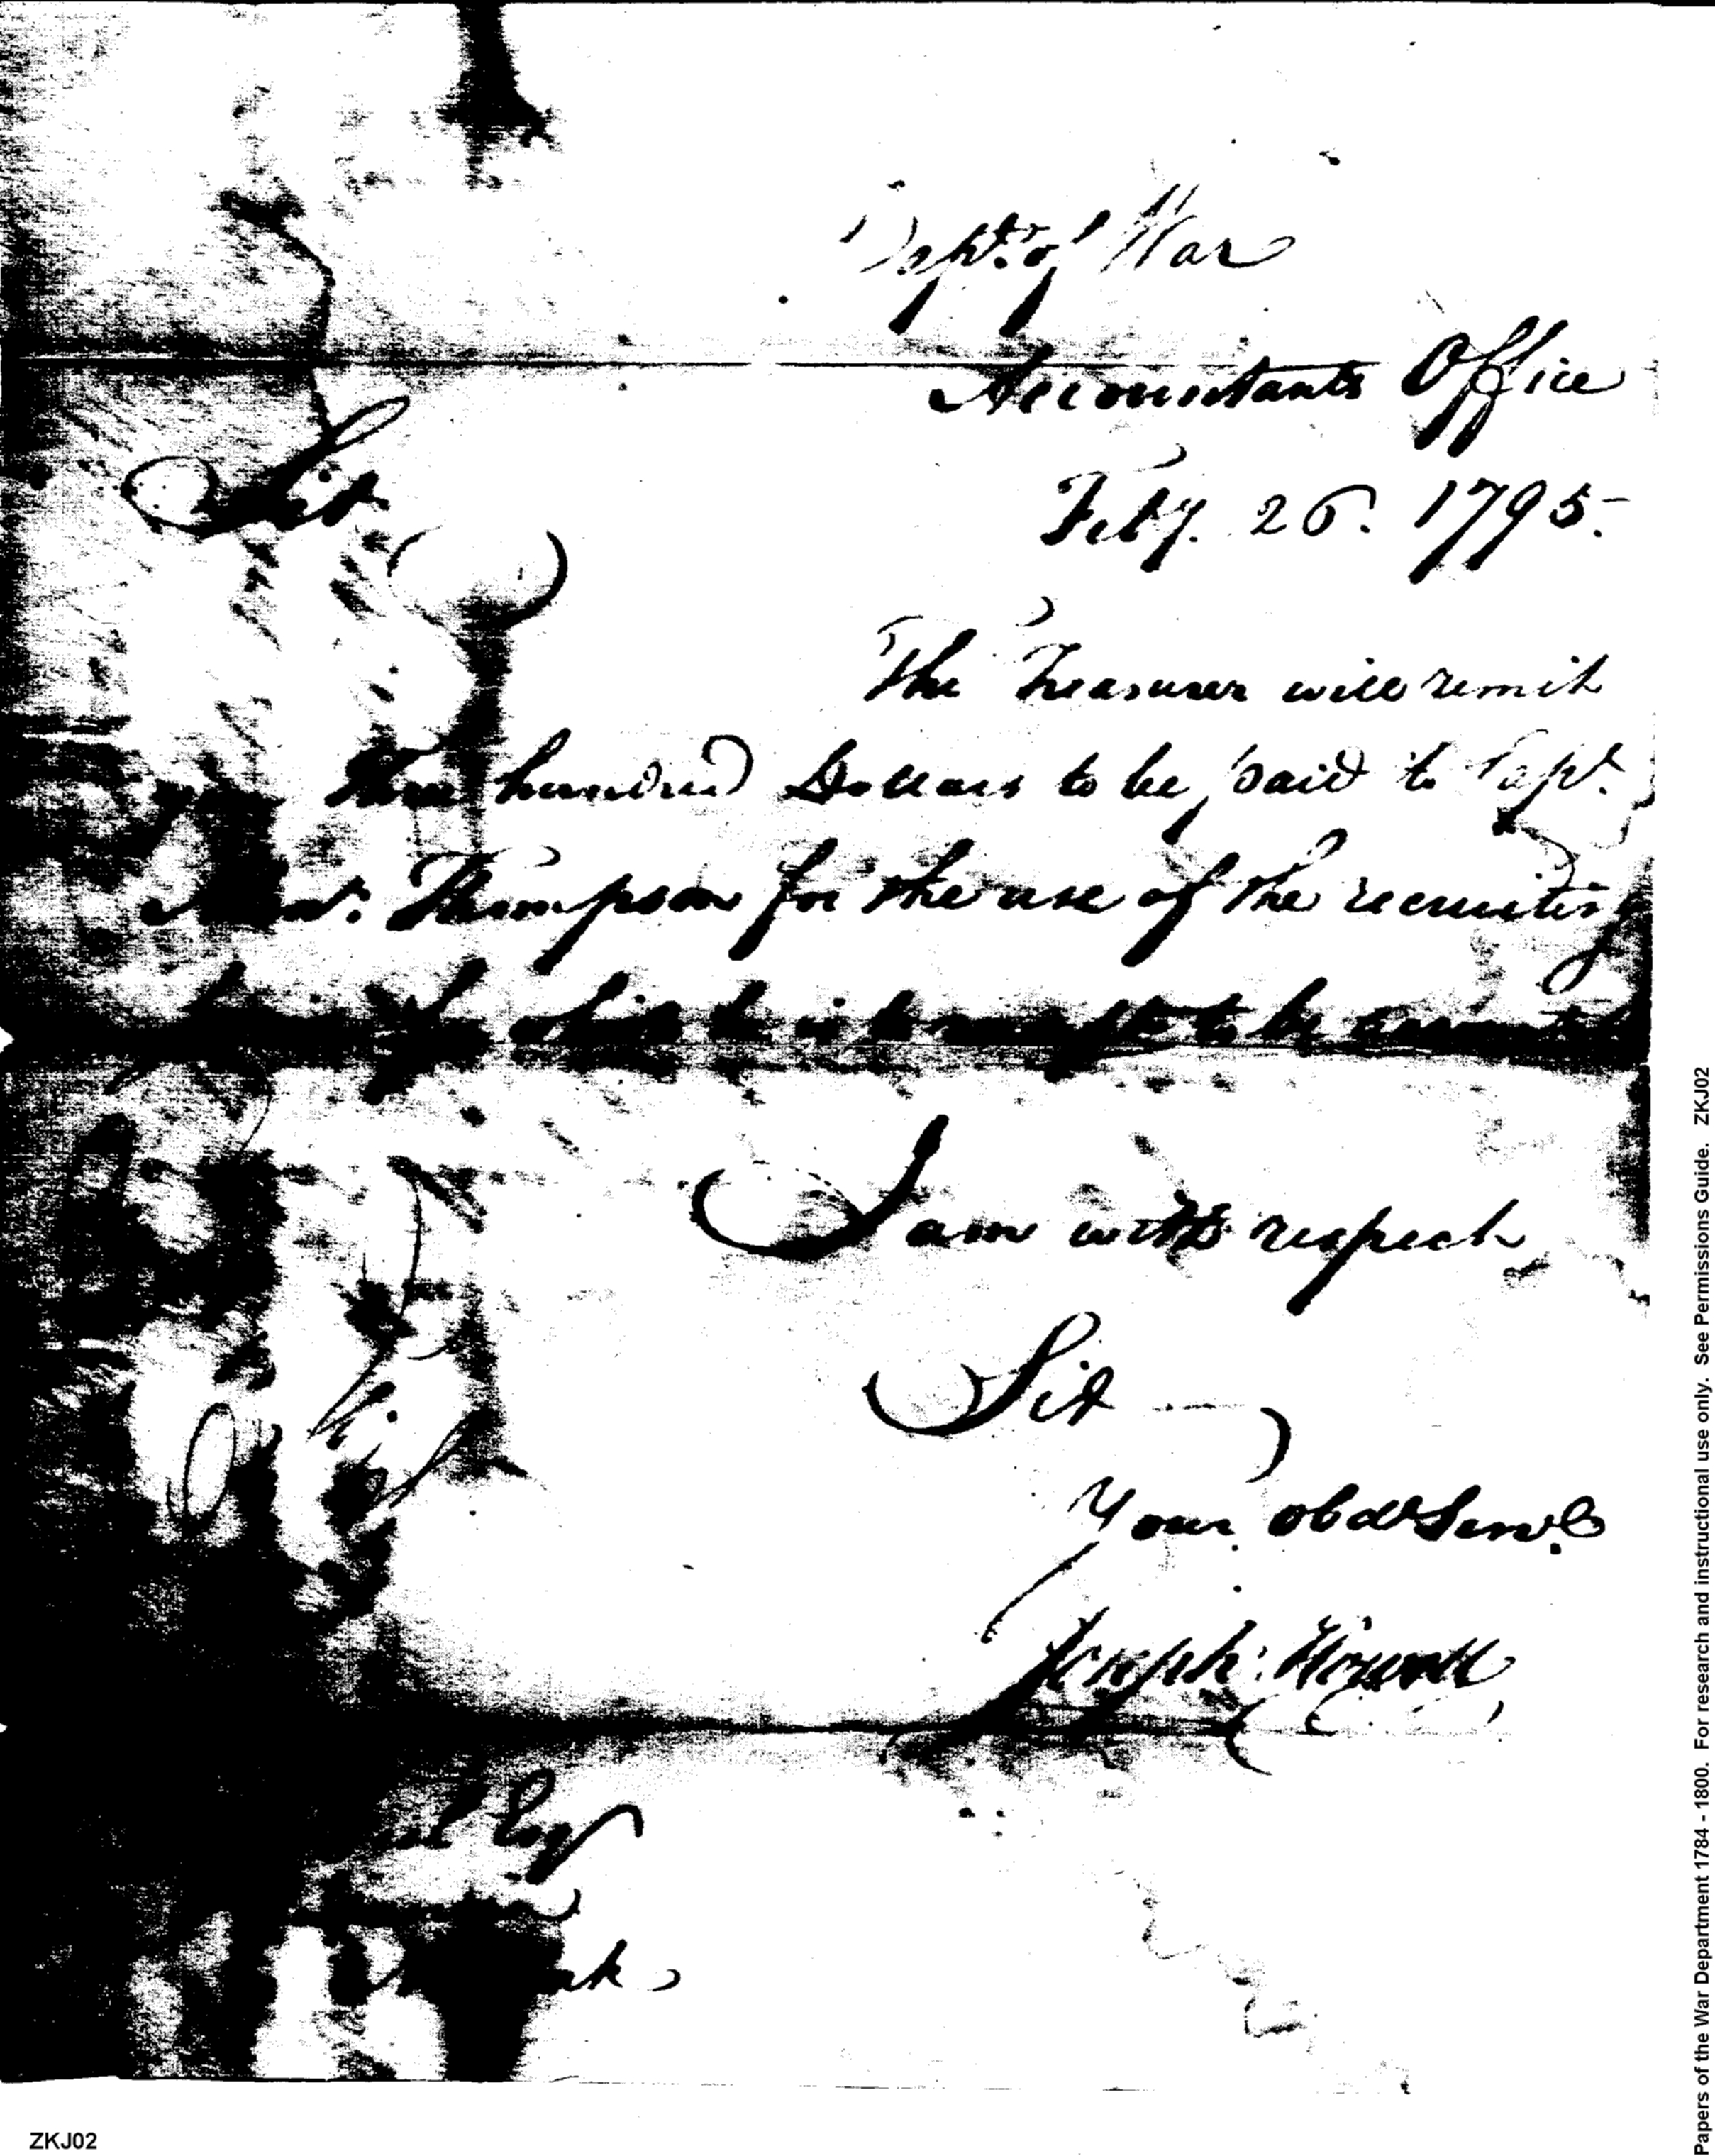 Dept. of War
Accountants Office
Feby. 26. 1795.
Sir
The Treasurer will remit
three hundred Dollars to be paid to Capt.
Thompson for the use of the recruiting
for which he is to be
I am with respect
Sir
Your obdt Servt.
Joseph Howell
Esqr
Papers of the War Department 1784 - 1800. For research and instructional use only. See Permissions Guide. ZKJ02
ZKJ02